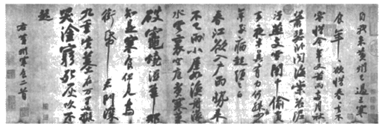 自我來黃州已過三寒
食年〻欲惜春春去不
容惜今年又苦雨兩月秋
蕭瑟卧聞海棠花泥
汙燕支雪闇中偷負
去夜半真有力何殊少
年病起頭已白
春江欲入戶雨勢來
不已小屋如漁舟濛〻
水雲裏空庖煮寒菜
破竈燒濕葦那
知是寒食但見烏
銜帋君門深
九重墳墓在万里也擬
哭塗窮死灰吹不
起
右黃州寒食二首